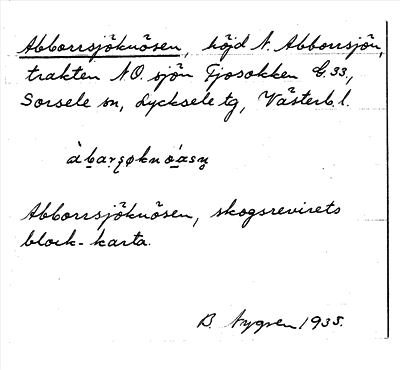 Abborrsjöknösen, höjd N. Abborrsjön,
trakten NO. sjön Fjosokken C. 33.,
Sorsele sn, Lycksele tg, Västerb. l.
Abborrsjöknösen, skogsrevirets
block-karta.
B. Nygren 1935.